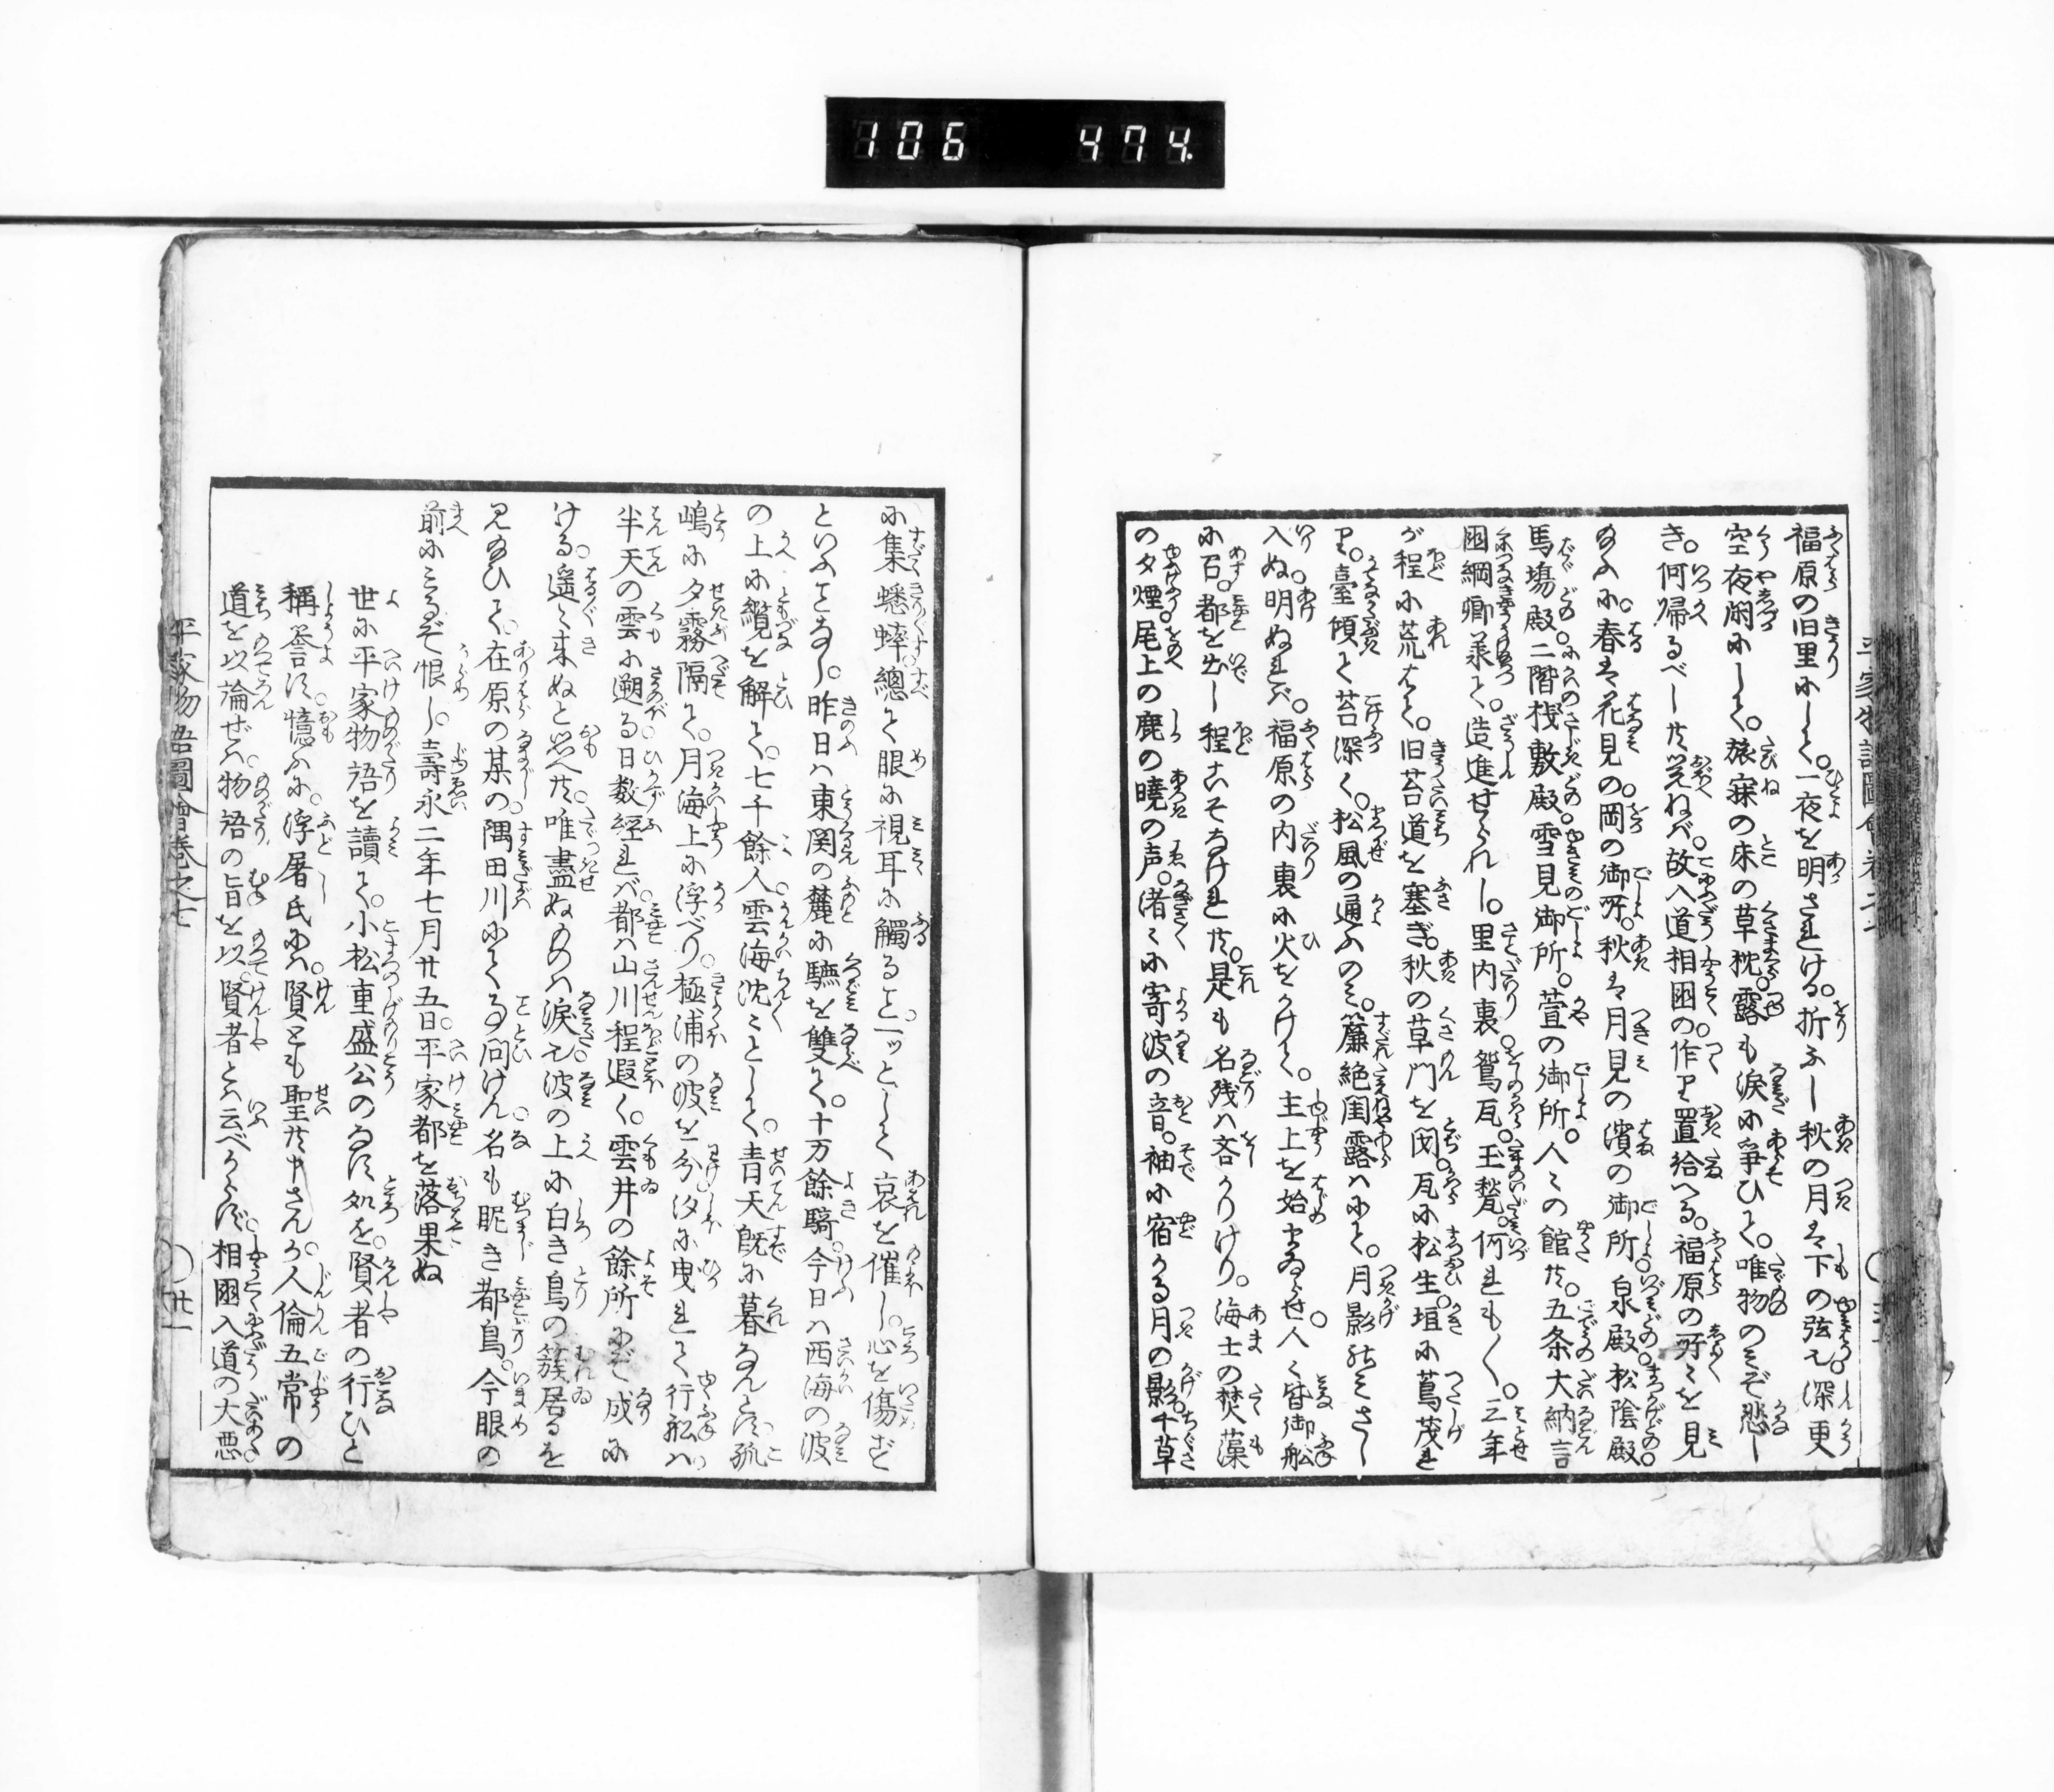 106 474.
福原の旧里にして。一夜を明されける。折ふし秋の月は下の弦也。深更
空夜閑にして。旅寐の床の草枕。露も涙に爭ひて。唯物のみぞ悲し
き。何帰るべし共覚ねば。故入道相国の作り置給へる。福原の所々を見
給ふに。春は花見の岡の御所。秋は月見の濱の御所。泉殿松陰殿
馬塲殿二階桟敷殿。雪見御所。萱の御所。人々の館共。五条大納言
国綱卿承て。造進せられし。里内裏鴛瓦。玉甃。何れも〱。三年
が程に荒はてて。旧苔道を塞ぎ。秋の草門を閉。瓦に松生垣に蔦茂れ
り。臺傾て苔深く。松風の通ふのミ。簾絶閨露ハにて。月影のミさし
入ぬ。明ぬれば。福原の内裏に火をかけて。主上を始まゐらせ人々皆御船
に召。都を出し程こそなけれ共。是も名残ハ吝かりけり。海士の焚藻
の夕煙。尾上の鹿の曉の声。渚々に寄波の音。袖に宿かる月の影千草
に集蟋蟀總て眼に視耳に觸ること。一ッとして哀を催し。心を傷ざ
といふことなし。昨日ハ東関の麓に轡を雙て。十万餘騎。今日ハ西海の波
の上に纜を解て。七千餘人雲海沈々として。青天既に暮なんとす孤
嶋に夕霧隔て。月海上に浮べり。極浦の波を分汐に曳れて行舩ハ
半天の雲に遡る日数経れば。都ハ山川程遐く。雲井の餘所にぞ成に
ける。遥々来ぬと思へ共。唯盡ぬものハ涙也波の上に白き鳥の簇居るを
見給ひて。在原の某の。隅田川にてこと問けん。名も眤き都鳥。今眼の
前にミるぞ恨し。壽永二年七月廿五日。平家都を落果ぬ
世に平家物語を讀て。小松重盛公のなす処を。賢者の行ひと
稱誉す。憶ふに。浮屠氏にハ。賢とも聖共申さんか。人倫五常の
道を以論ぜハ。物語の旨を以。賢者とハ云べからず。相国入道の大悪
平家物語圖會巻之七
廿一